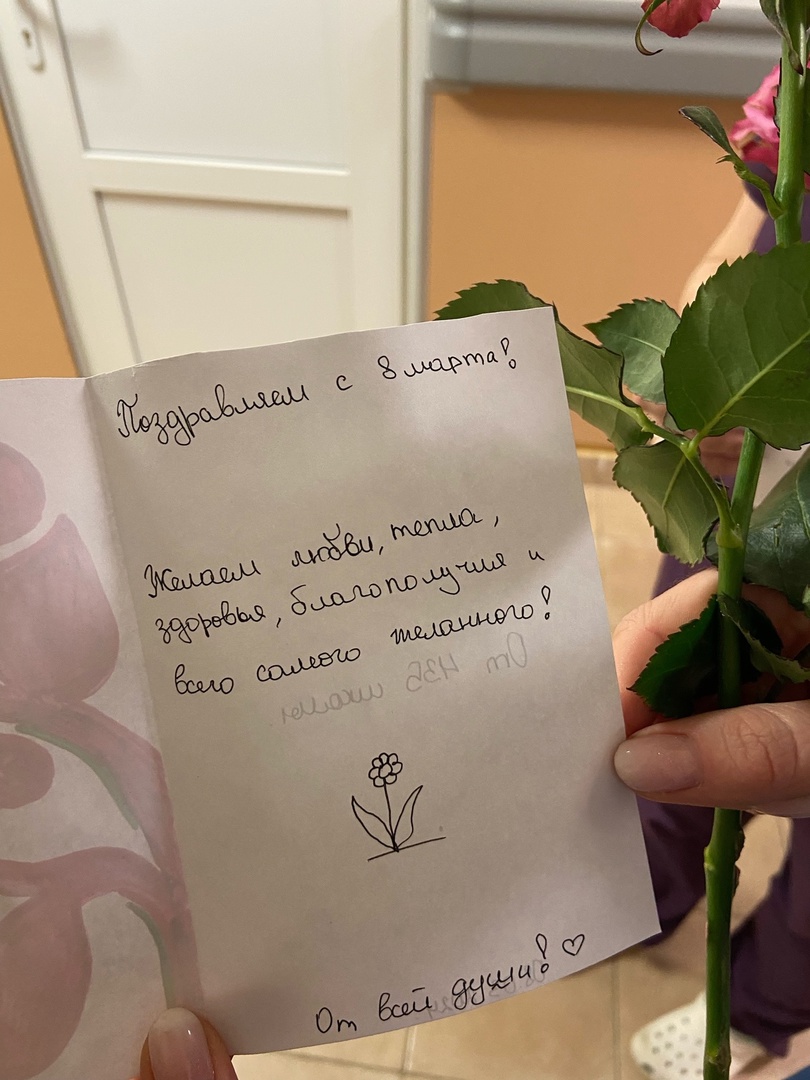 Поздравляем с 8 марта!
Желаем любви, тепла,
здоровья, благополучия и
всего самого желанного!
От всей души! ♡